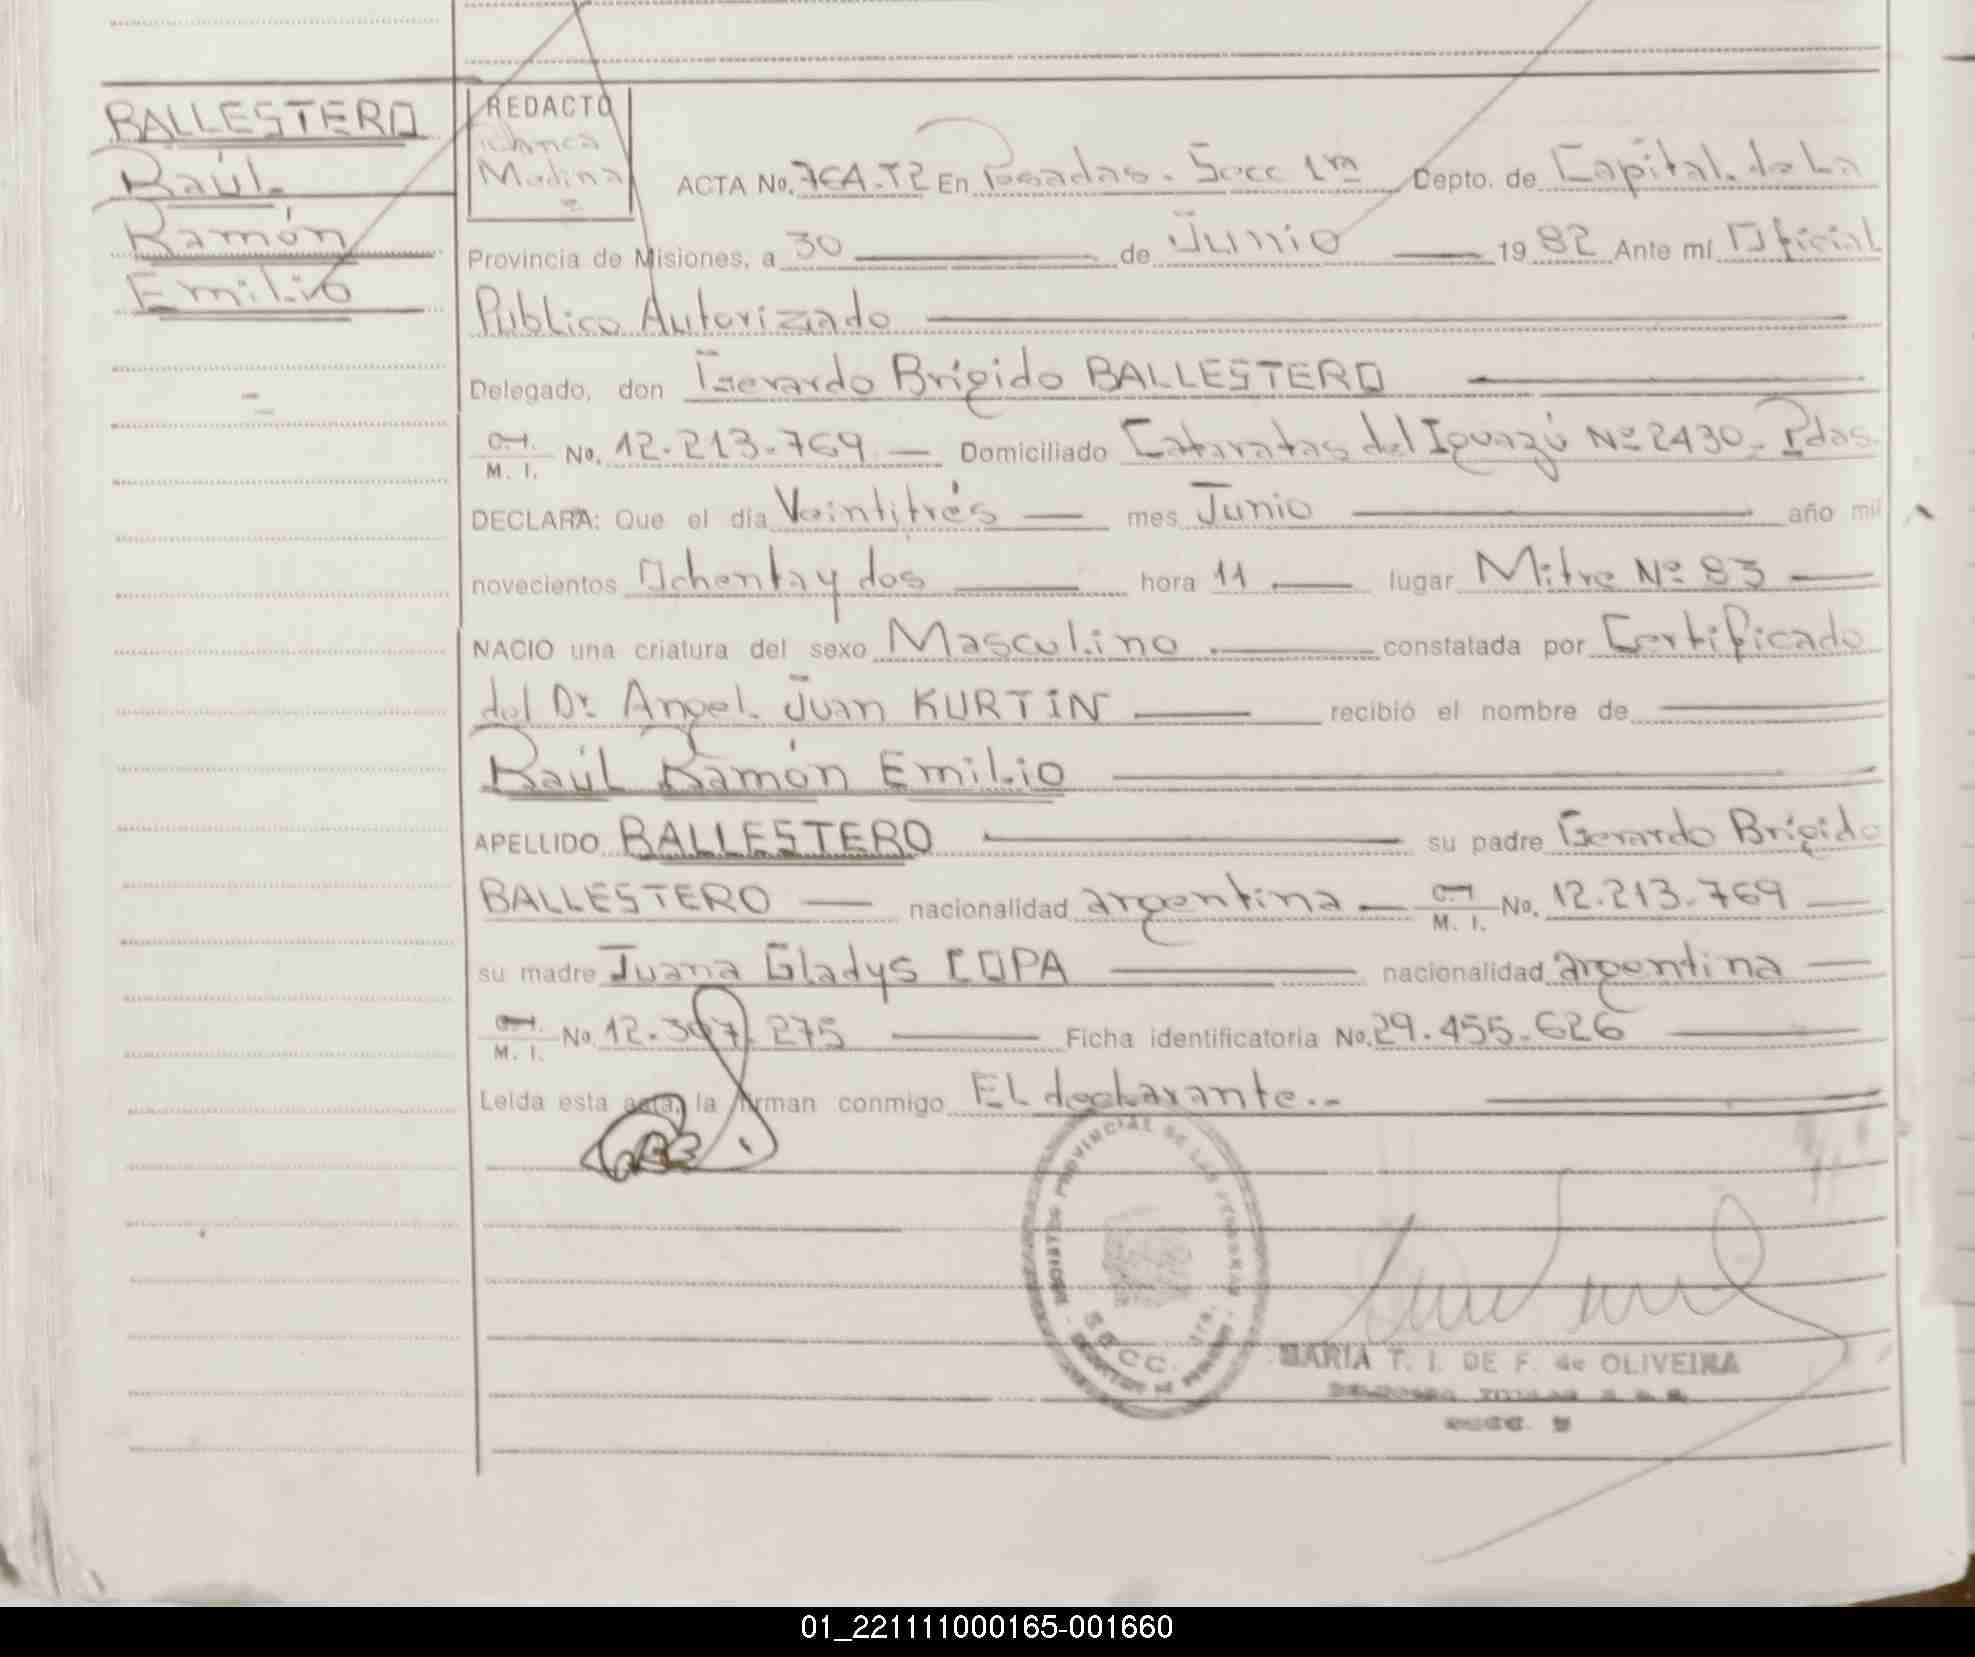 BALLESTERO
Raúl
Ramón
Emilio
REDACTO
Blanca
Medina
ACTA No. 764-T2 En Posadas - Secc 1ra Depto. de Capital de La
Provincia de Misiones, a 30 de Junio 1982 Ante mí Oficial
Público Autorizado
Delegado, don Gerardo Brígido BALLESTERO
C.I.
M. I. No. 12.213.769 Domiciliado Cataratas del Iguazú Nº 2430 - Pdas.
DECLARA: Que el día Veintitrés mes Junio año mil
novecientos Ochenta y dos hora 11 lugar Mitre Nº 83
NACIO una criatura del sexo Masculino constatada por Certificado
del Dr. Angel Juan KURTIN recibió el nombre de
Raúl Ramón Emilio
APELLIDO BALLESTERO su padre Gerardo Brígido
BALLESTERO nacionalidad argentina C.I.
M. I. No. 12.213.769
su madre Juana Gladys COPA nacionalidad argentina
C.I.
M. I. No. 12.397.275 Ficha identificatoria No. 29.455.626
Leída esta acta, la firman conmigo El declarante.-
REGISTRO PROVINCIAL DE LAS PERSONAS
SECC. 1ra.
MARIA T. I. DE F. de OLIVEIRA
01_221111000165-001660